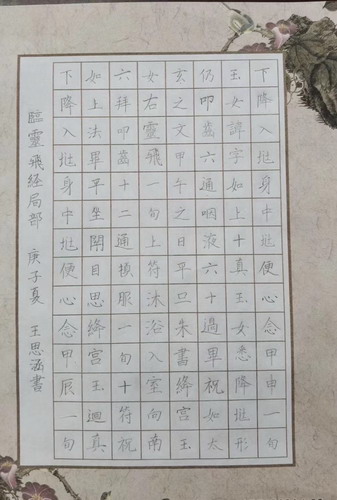 下降入拙身中拙便心念甲申一旬
玉女諱字如上十真玉女悉降拙形
仍叩齒六通咽液六十過畢祝如太
玄之文甲午之日平旦朱書絳宮玉
女右靈飛一旬上符沐浴入室向南
六拜叩齒十二通頓服一旬十符祝
如上法畢平坐閉目思絳宮玉迴真
下降入拙身中拙便心念甲辰一旬
臨靈飛經局部 庚子夏 王思涵書